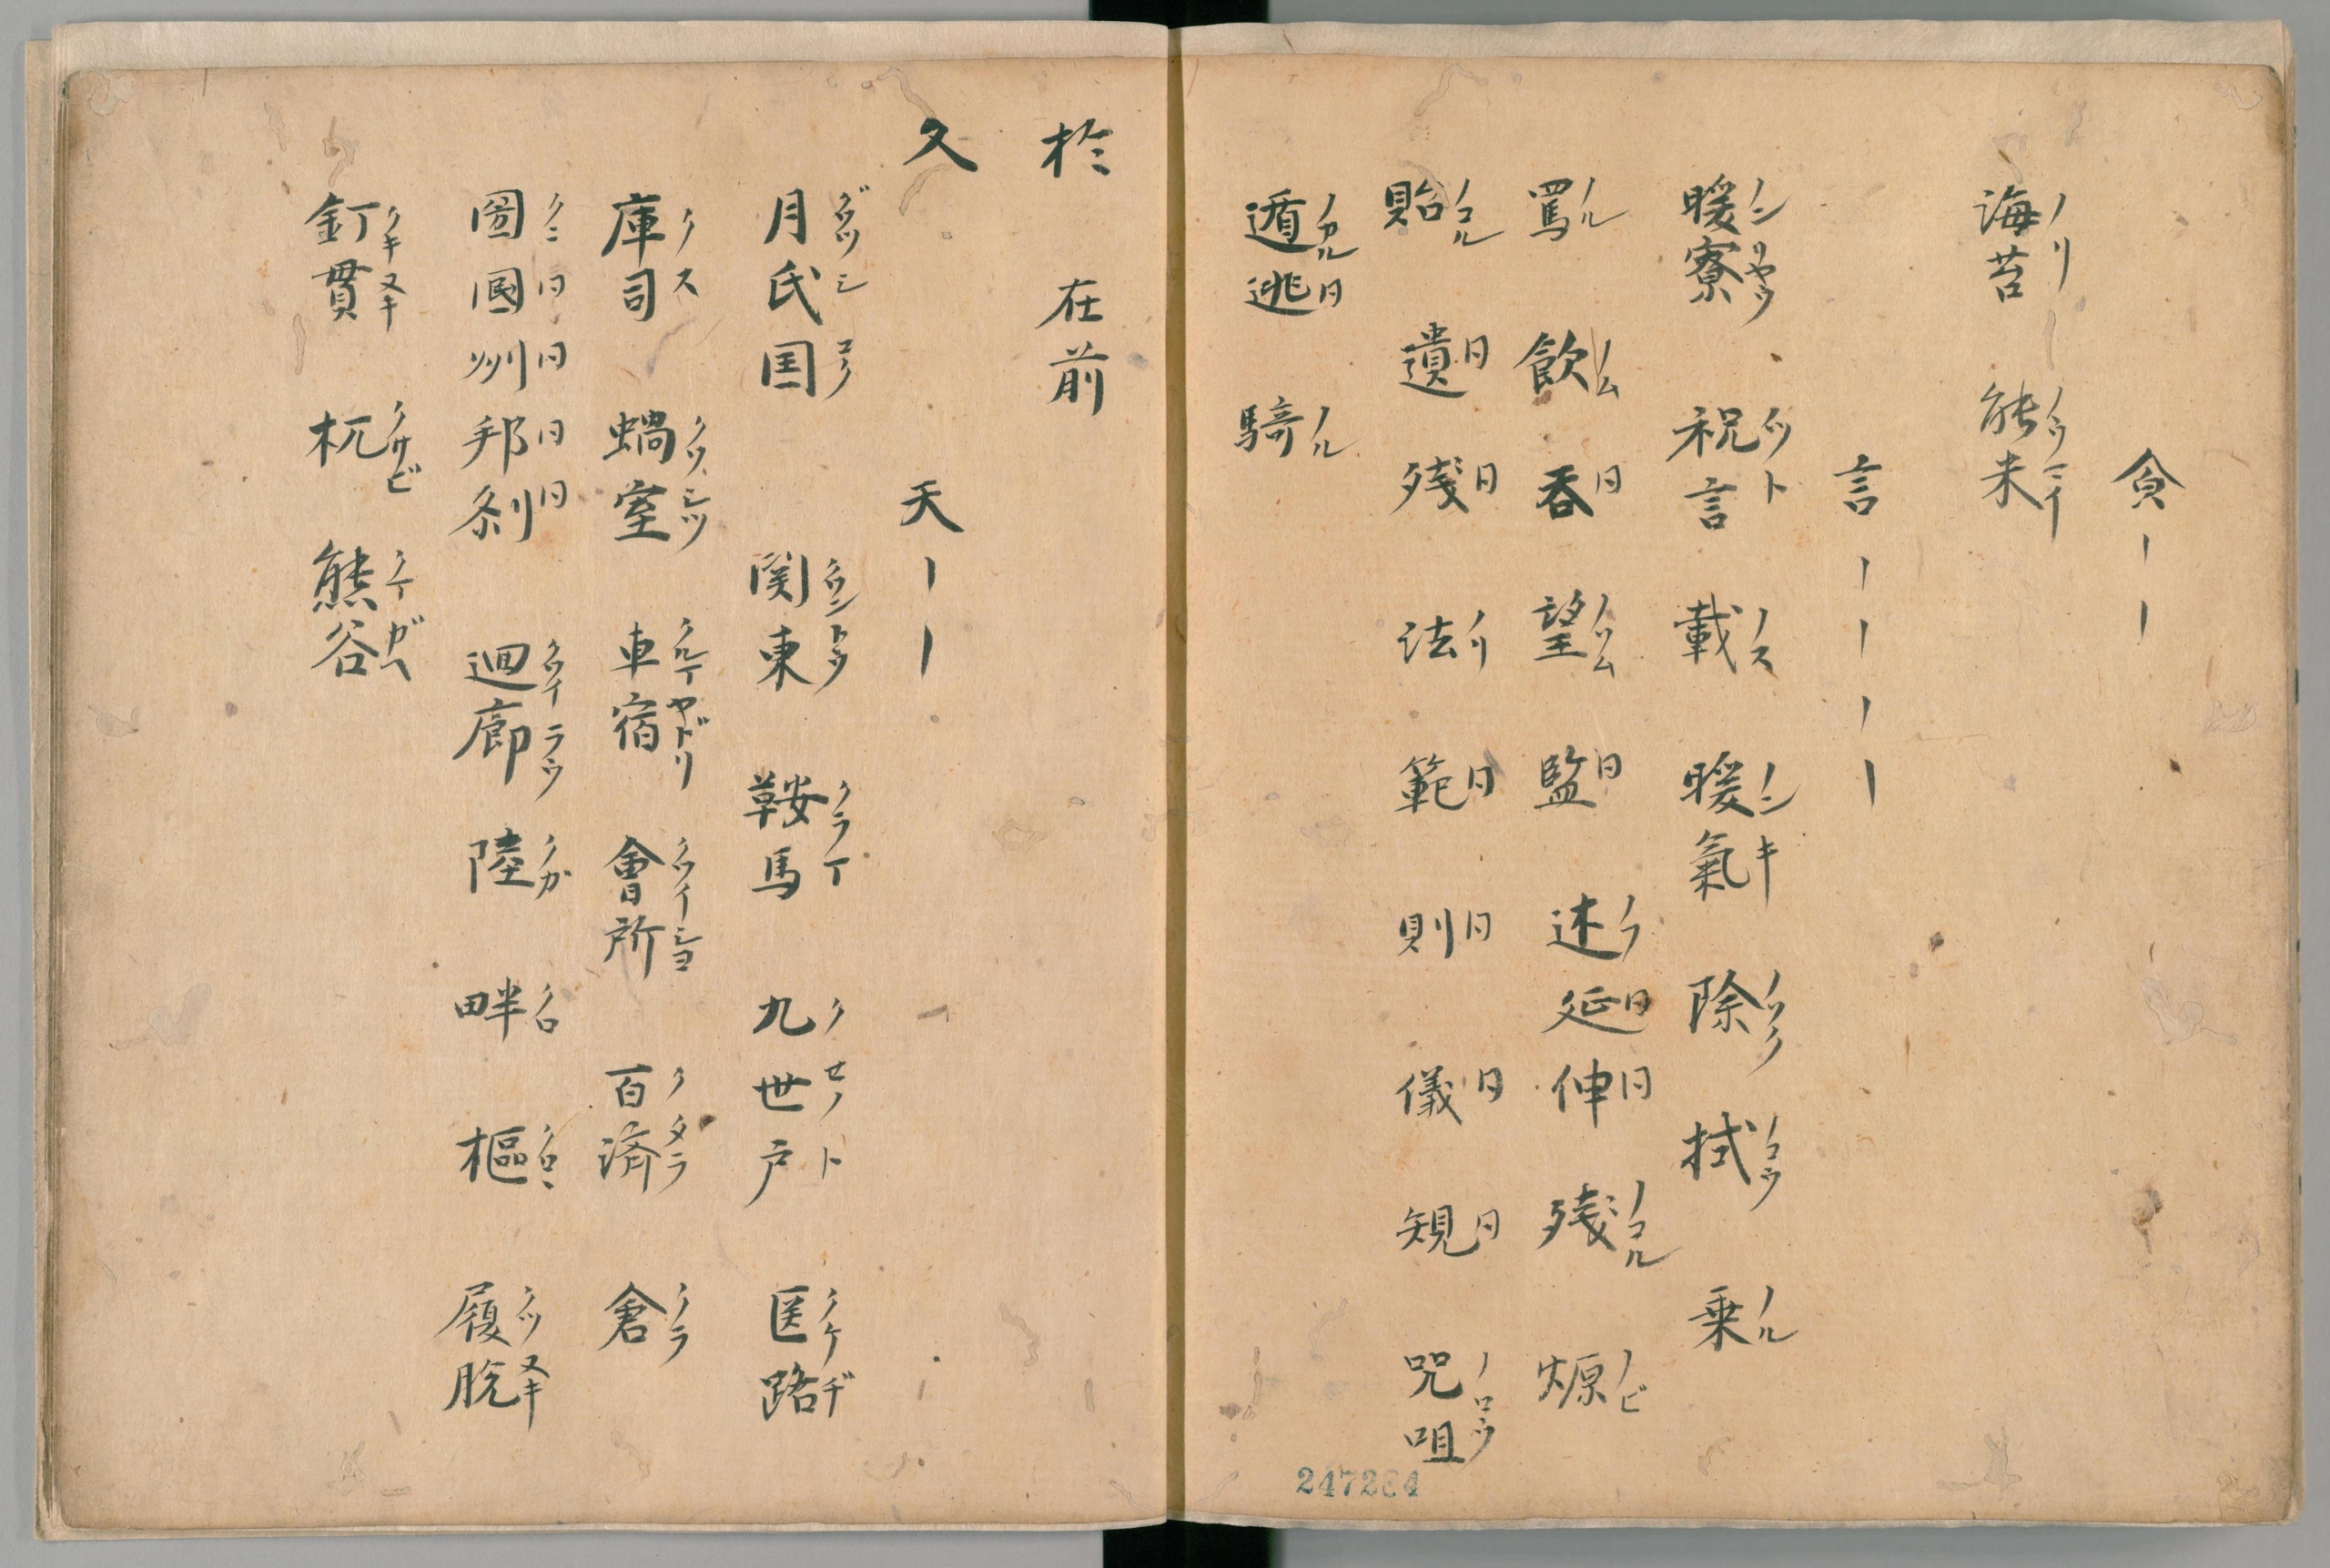 食｜｜
海苔ノリ 能米ノウマイ
言｜｜｜｜
暖寮ノンリヤウ 祝言ノツト 載ノス 暖氣ノンキ 除ノソク 拭ノコウ 乗ノル
罵ノル 飲ノム 呑日 望ノソム 監日 述ノフ 延日 伸日 残ノコル 煩ノビ
貽ノコル 遺日 残日 法ノリ 範日 則日 儀日 規日 咒咀ノロウ
遁ノガル 逃日 騎ノル
247284
於 在前
久 天｜｜
月氏国グワツシコク 関東クワントウ 鞍馬クラマ 九世戸クセノト 医路クケヂ
庫司クス 蝸室クワシツ 車宿クルマヤドリ 會所クワイシヨ 百済クタラ 倉クラ
圀クニ 國日 州日 邦日 刹日 廻廊クワイラウ 陸クカ 畔クロ 樞クロヽ 履脱クツヌキ
釘貫クキヌキ 杭クサビ 熊谷クマガヘ